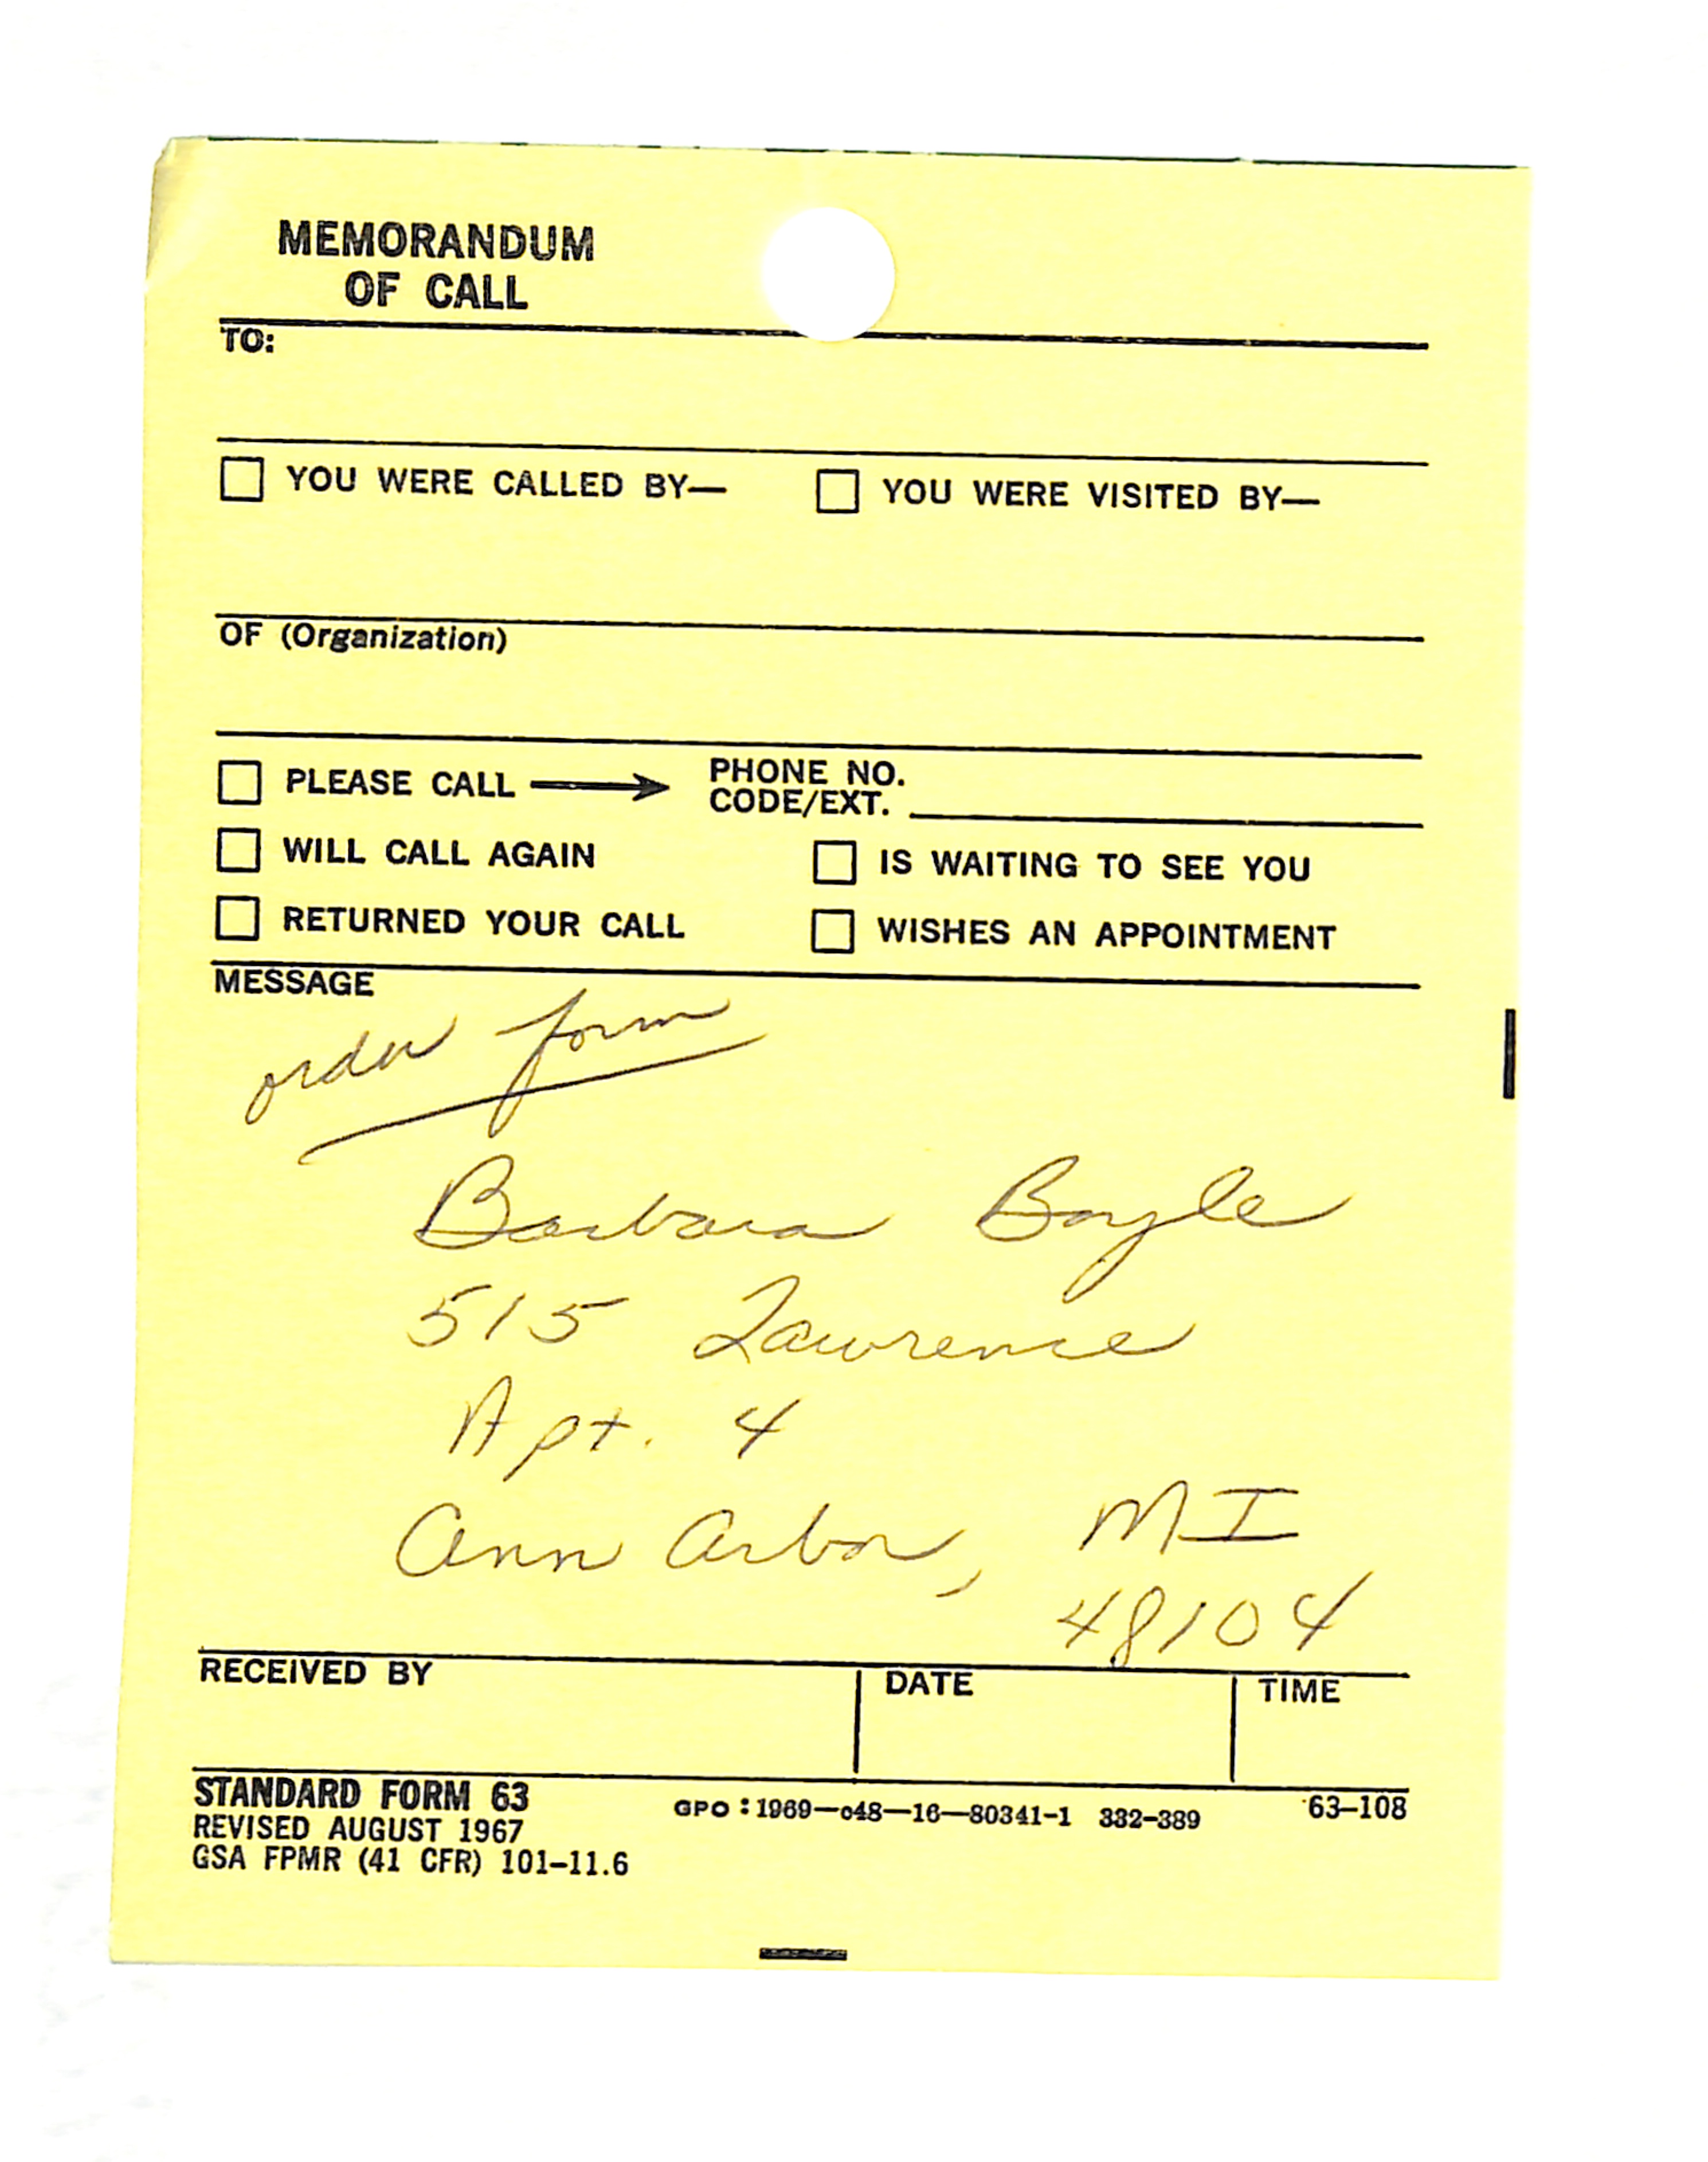 MEMORANDUM
OF CALL
TO:
YOU WERE CALLED BY— YOU WERE VISITED BY—
OF (Organization)
PLEASE CALL → PHONE NO.
CODE/EXT.
WILL CALL AGAIN IS WAITING TO SEE YOU
RETURNED YOUR CALL WISHES AN APPOINTMENT
MESSAGE
order form
Barbara Boyle
515 Lawrence
Apt. 4
Ann Arbor, MI
48104
RECEIVED BY DATE TIME
STANDARD FORM 63 GPO : 1969—o48—16—80341-1 332-389 63-108
REVISED AUGUST 1967
GSA FPMR (41 CFR) 101-11.6